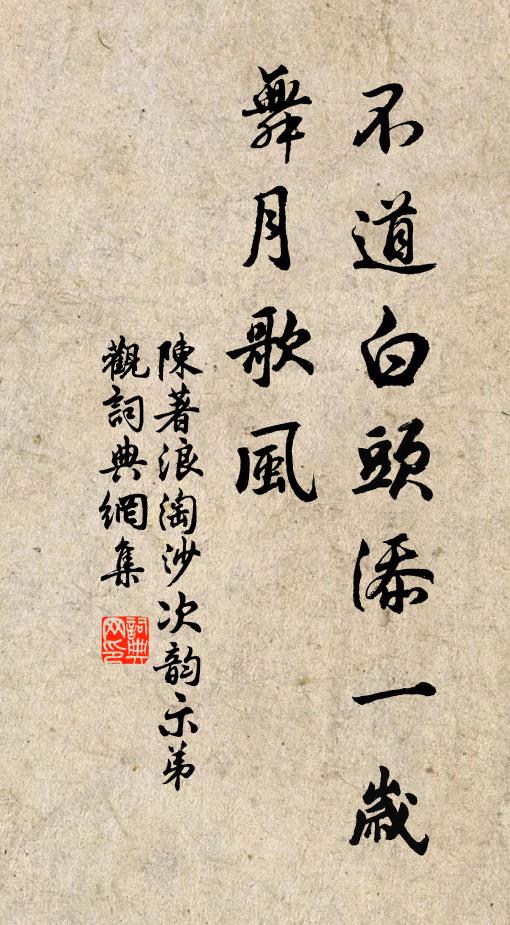 不道白頭添一歲
舞月歌風
陳著浪淘沙次韵示弟
觀詞典網集
詞典
网印